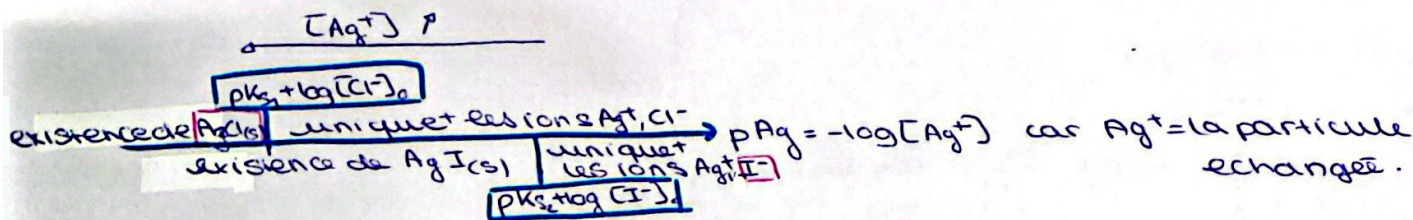 [Ag⁺] ↗
pKs₁+log[Cl⁻]₀
existence de AgCl(s) uniqueᵗ les ions Ag⁺, Cl⁻ pAg = -log[Ag⁺] car Ag⁺ = la particule
existence de AgI(s) uniqueᵗ les ions Ag⁺, I⁻ echangée.
pKs₂+log[I⁻]₀